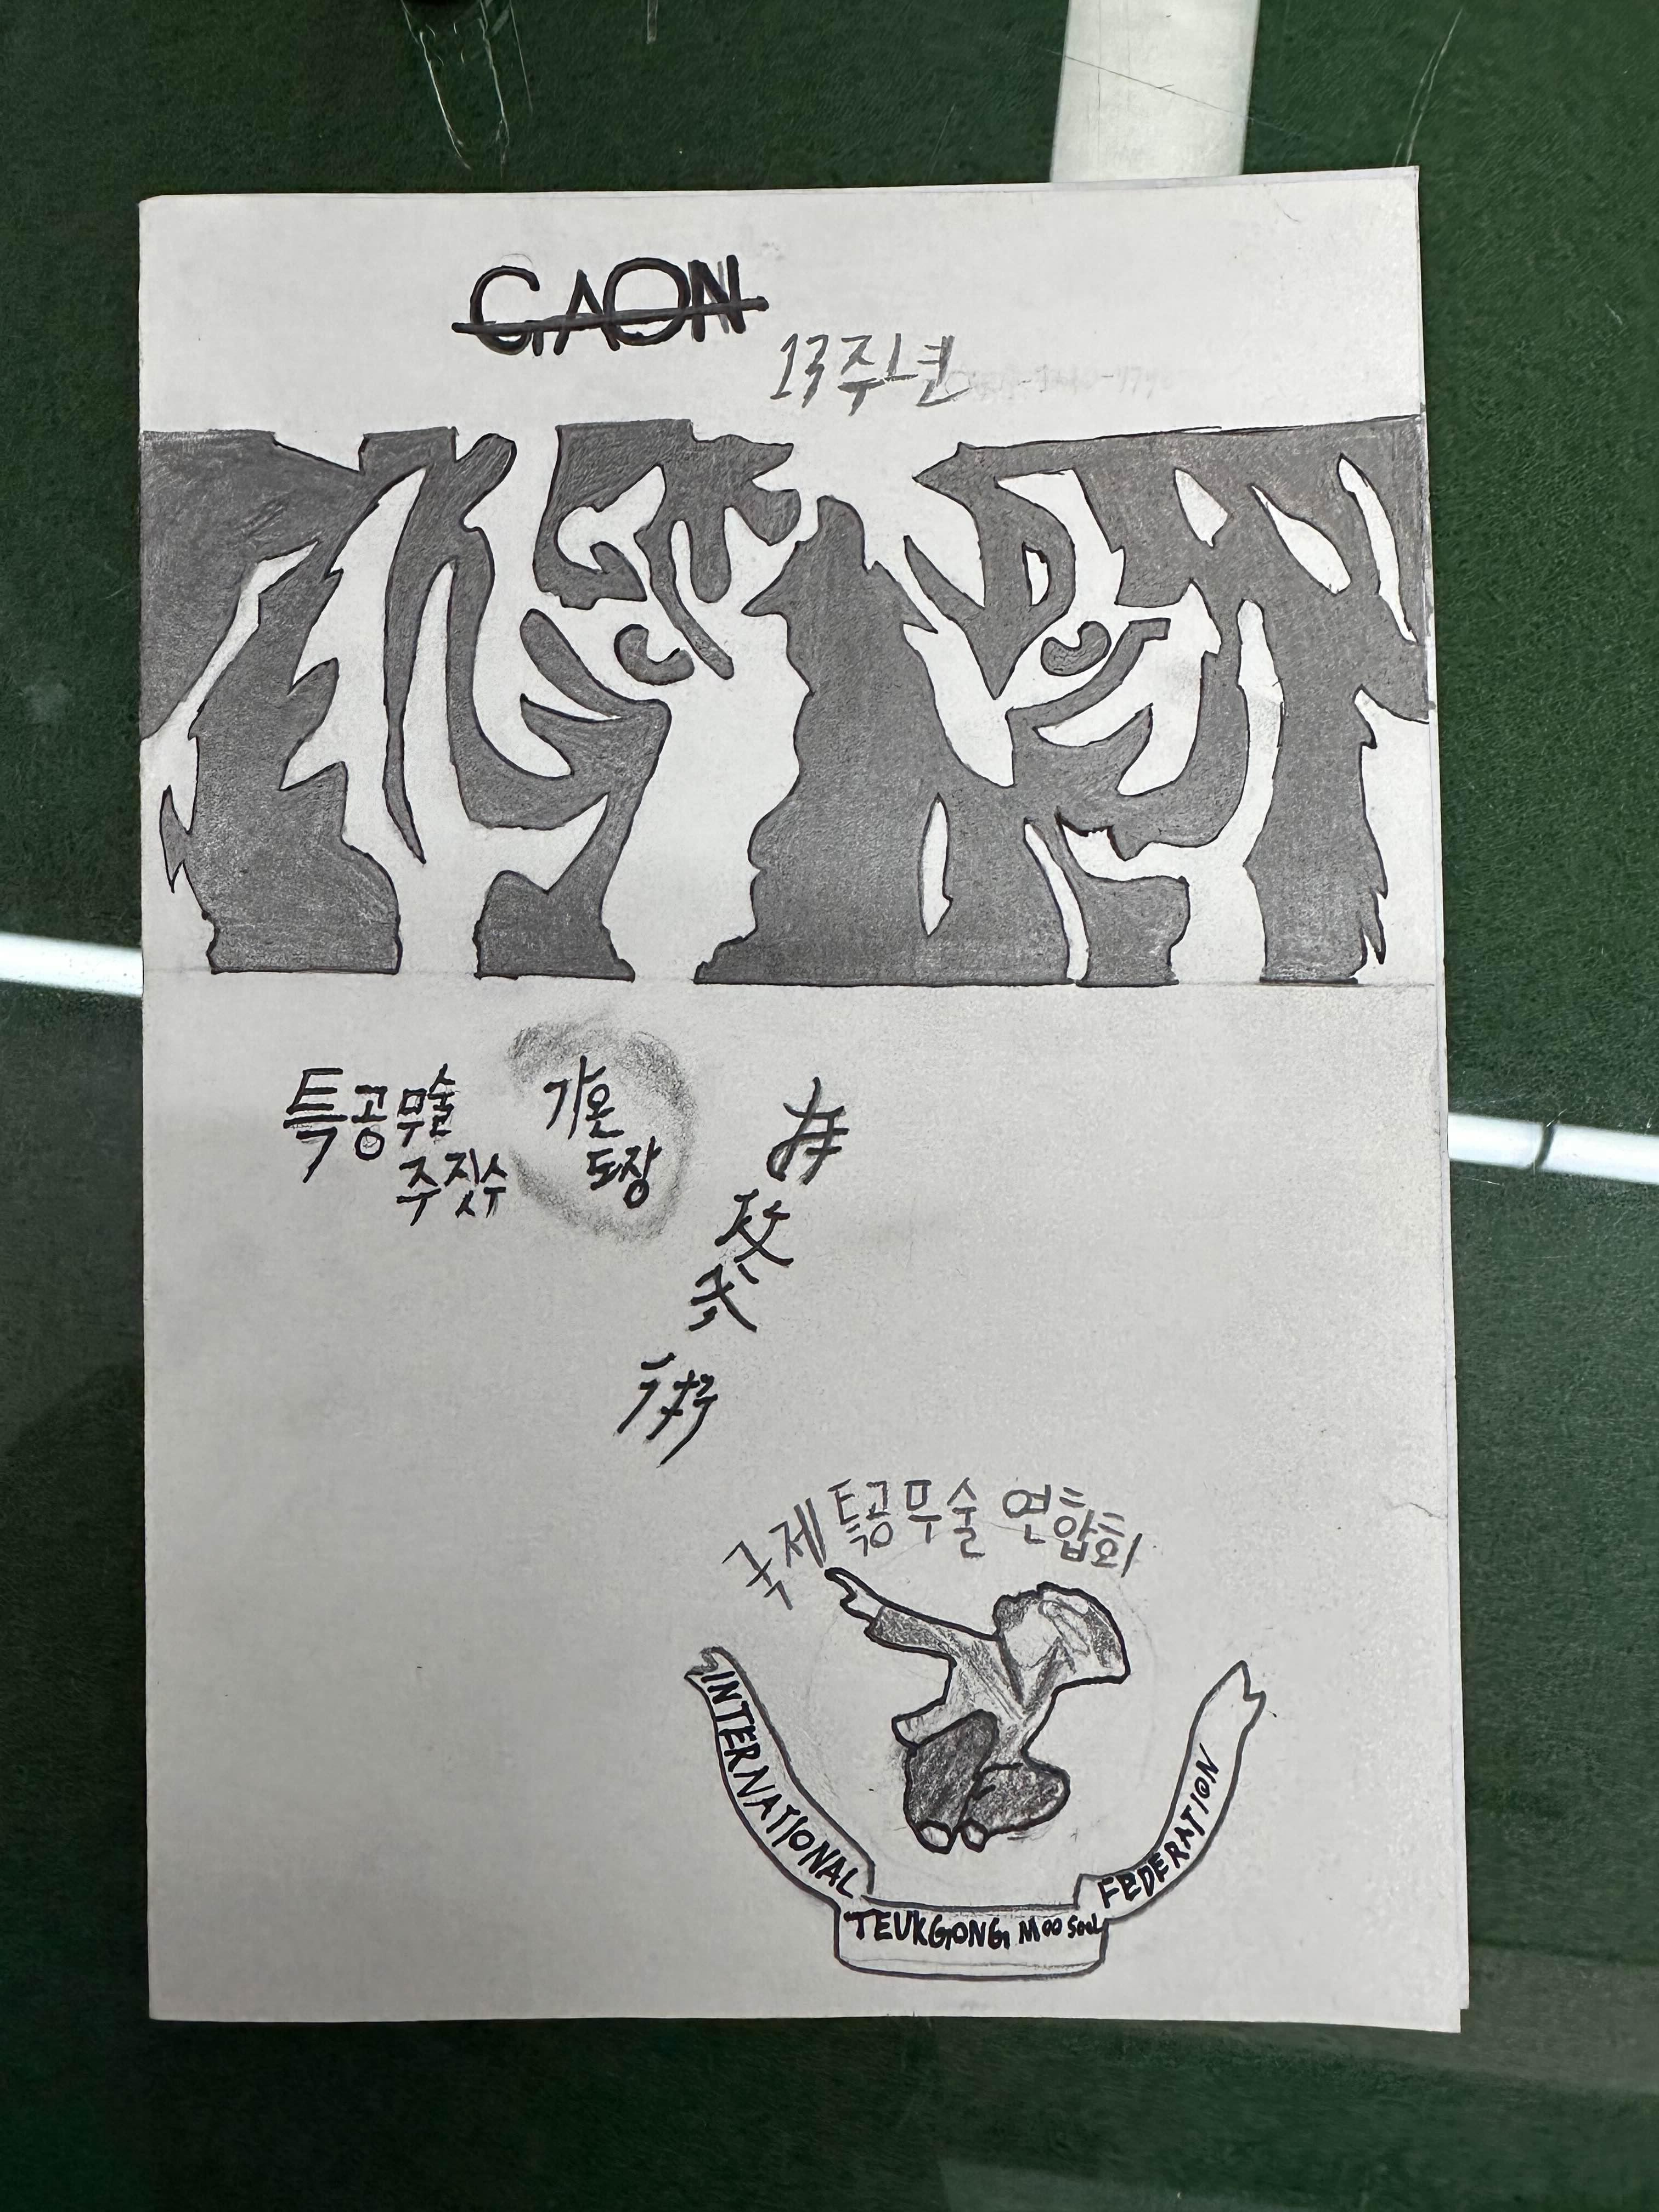 GAON
13주년
특공무술
주짓수
가온
도장
국제특공무술 연합회
INTERNATIONAL
TEUKGONG MOO SOOL
FEDERATION